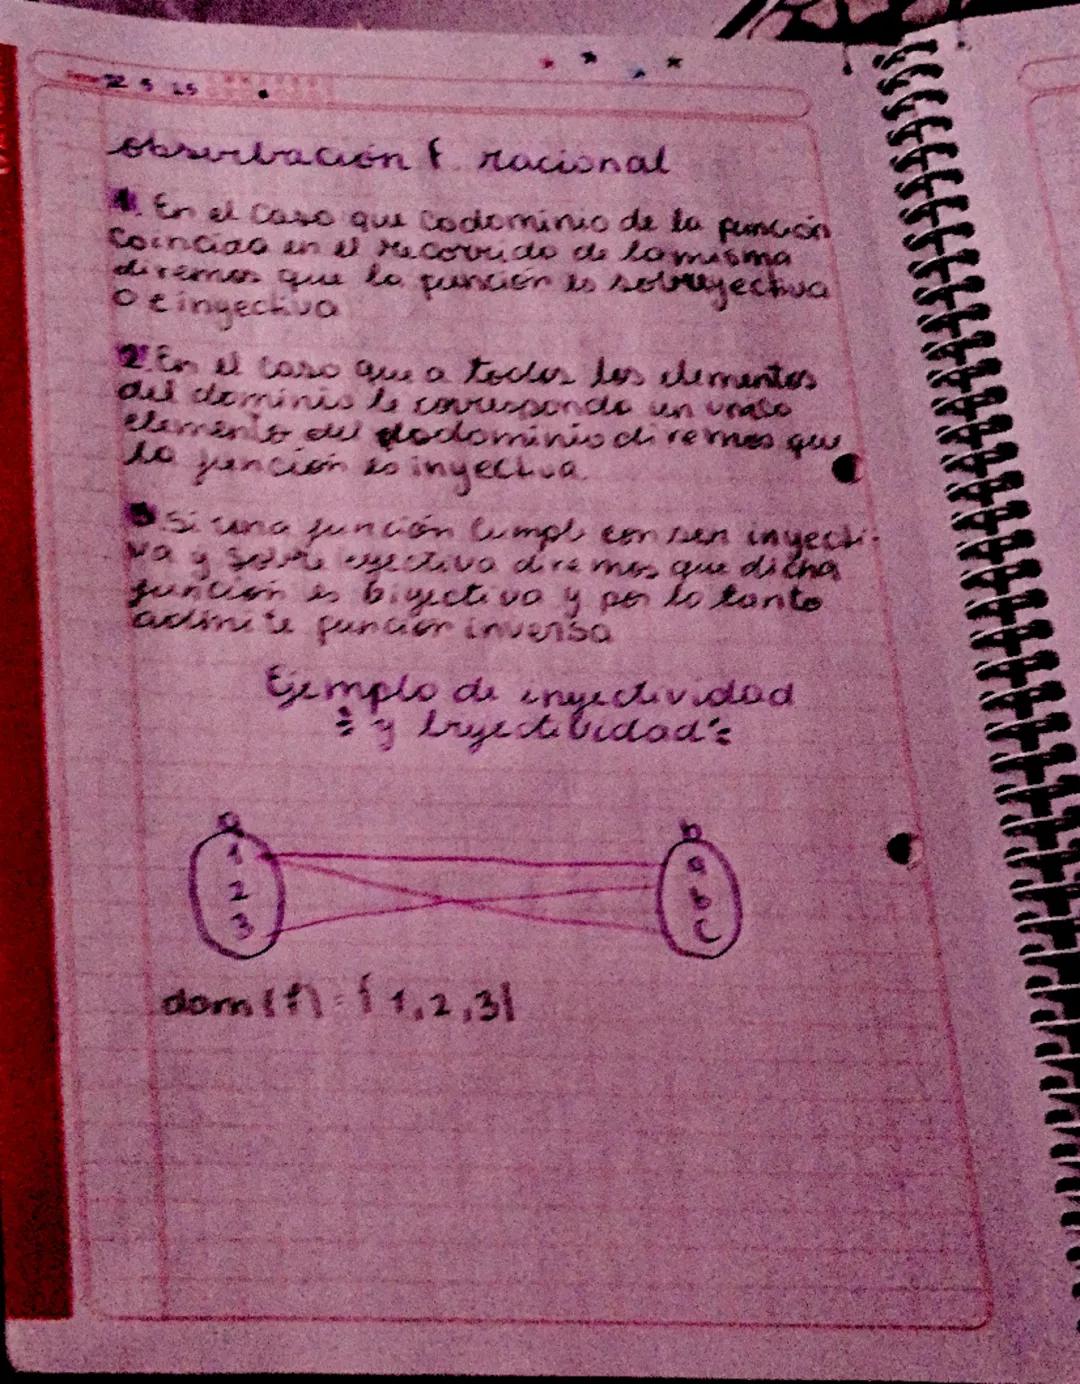 22 5 25
obserbación f. racional
1. En el caso que codominio de la función
coincida en el recorrido de la misma
diremos que la función es sobreyectiva
o e inyectiva
2. En el caso que a todos los elementos
del dominio le corresponda un unico
elemento del dodominio diremos que
la función es inyectiva.
3. Si una función cumpl con ser inyecti-
va y sobre eyectiva diremos que dicha
función es biyectiva y por lo tanto
admite función inversa
Ejemplo de inyectividad
y bryectibidad
a b
1 a
2 b
3 c
dom(f) = {1,2,3}